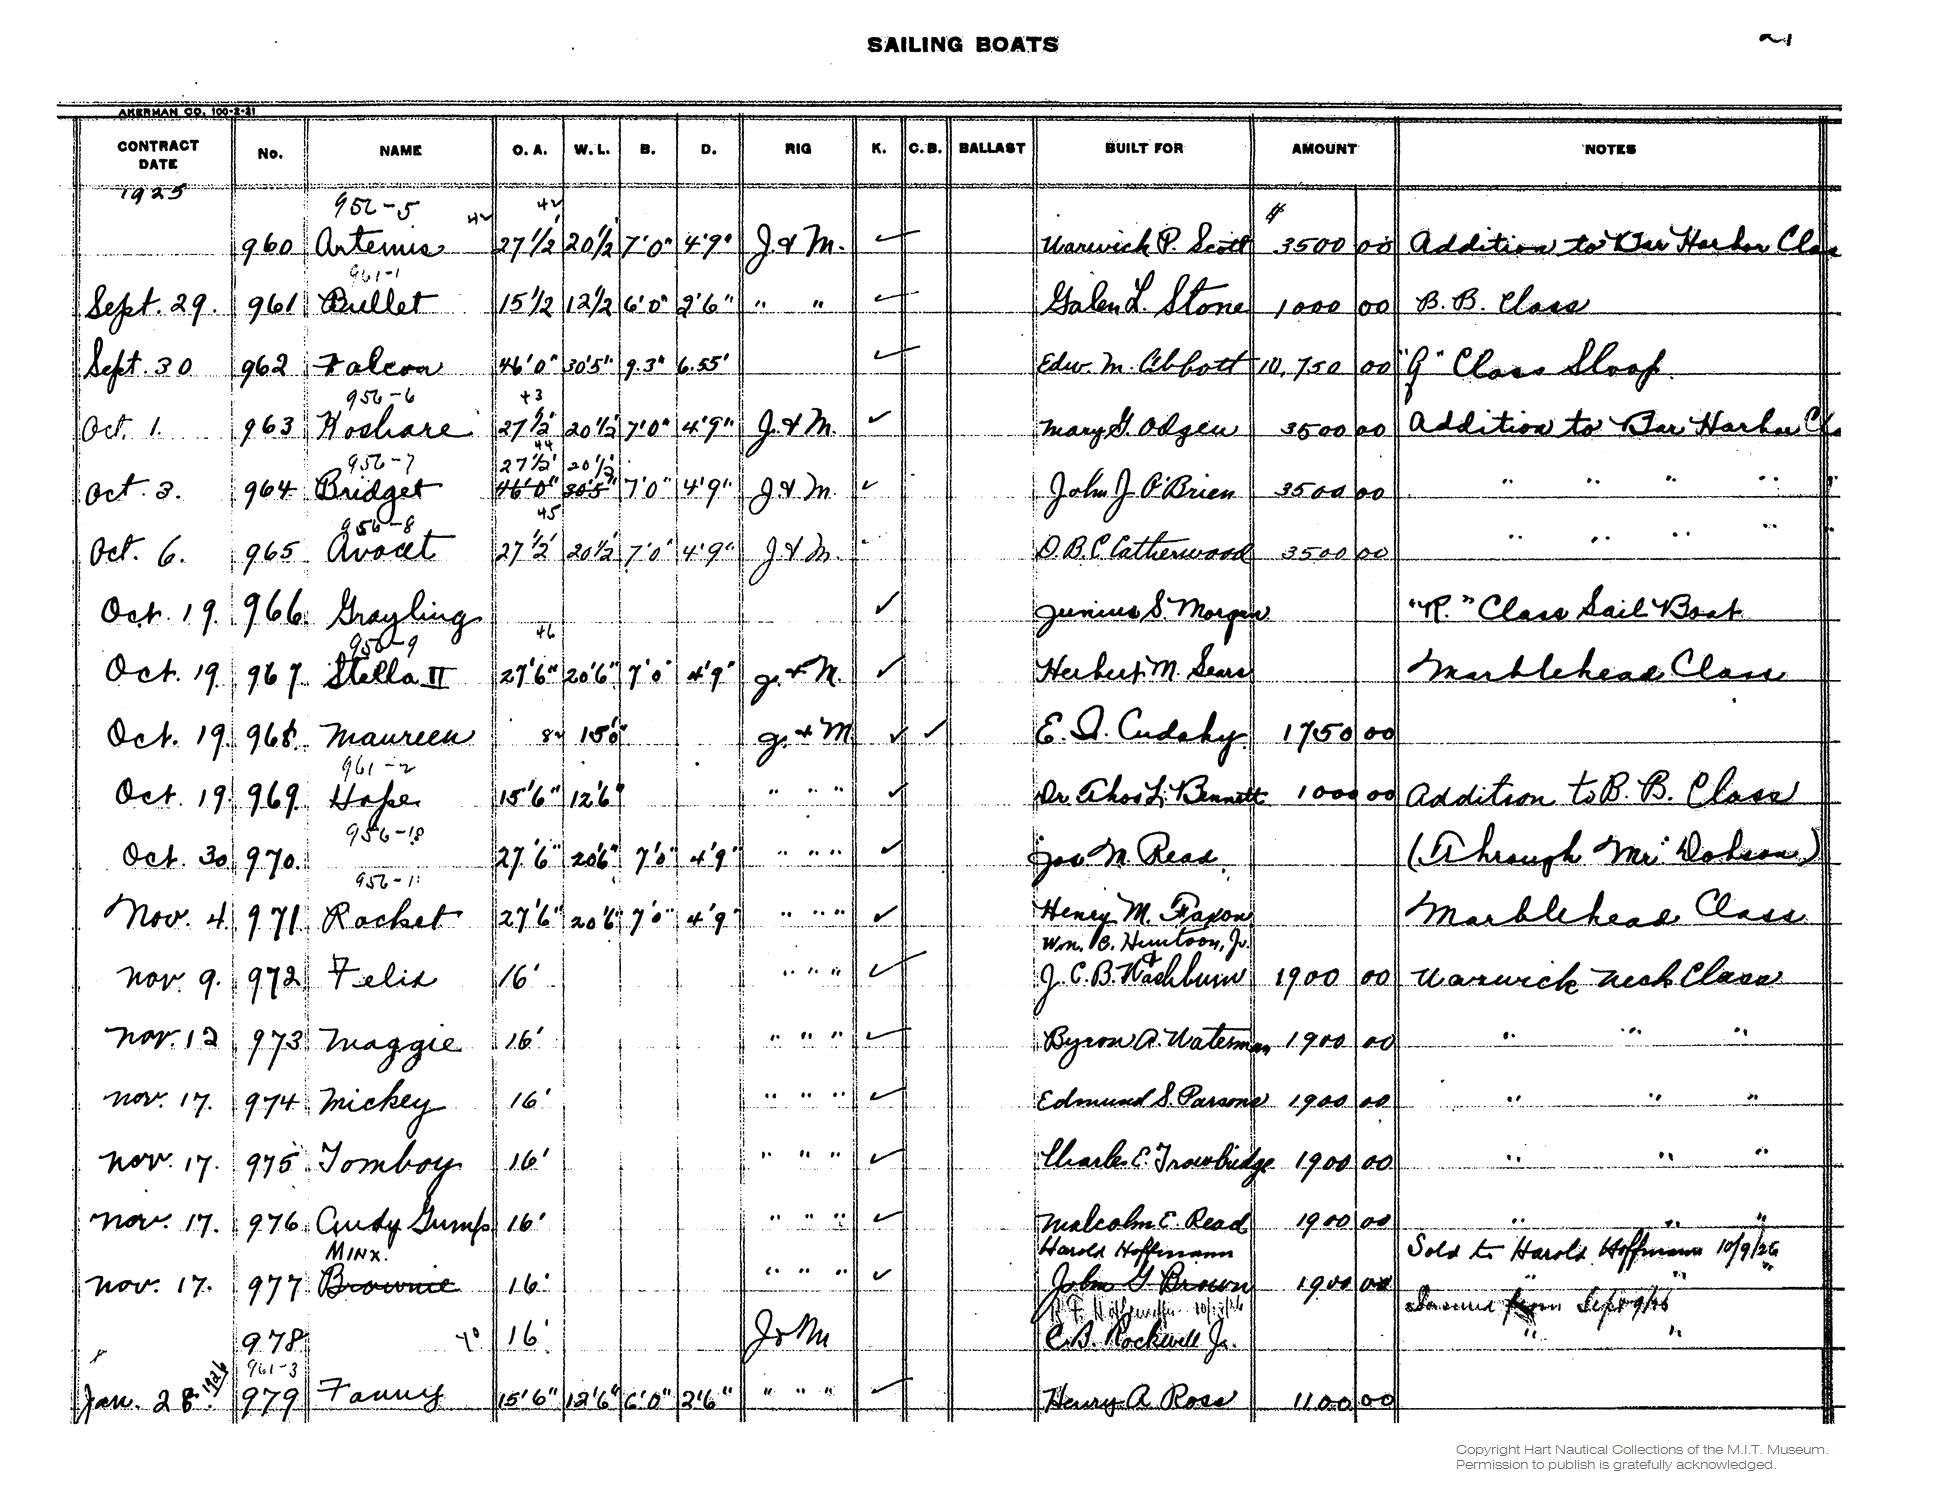 SAILING BOATS 21
AKERMAN CO. 100-2-21
CONTRACT DATE No. NAME O. A. W. L. B. D. RIG K. C. B. BALLAST BUILT FOR AMOUNT NOTES
1925
956-5 42 42 $
960 Artemis 27 1/2' 20 1/2' 7'0" 4'9" J. & M. ✓ Warwick P. Scott 3500 00 Addition to Bar Harbor Clas
961-1
Sept. 29. 961 Bullet 15 1/2 12 1/2 6'0" 2'6" " " ✓ Galen L. Stone 1000 00 B. B. Class
Sept. 30 962 Falcon 46'0" 30'5" 9.3" 6.55' ✓ Edw. M. Abbott 10,750 00 "Q" Class Sloop.
956-6 43
Oct. 1. 963 Koshare 27 1/2' 20 1/2' 7'0" 4'9" J. & M. ✓ Mary G. Odgen 3500 00 Addition to Bar Harbor Cla
956-7 44
27 1/2' 20 1/2
Oct. 3. 964 Bridget 46'0" 30'5" 7'0" 4'9" J. & M. ✓ John J. O'Brien 3500 00 " " " " "
956-8 45
Oct. 6. 965 Avocet 27 1/2' 20 1/2' 7'0" 4'9" J. & M. D. B. C. Catherwood 3500 00 " " " "
Oct. 19. 966 Grayling ✓ Junius S. Morgan "R." Class Sail Boat
956-9 46
Oct. 19. 967. Stella II 27'6" 20'6" 7'0" 4'9" J. & M. ✓ Herbert M. Sears Marblehead Class
Oct. 19. 968. Maureen 15'0" J. & M ✓ ✓ E. I. Cudahy 1750 00
961-2
Oct. 19. 969. Hope 15'6" 12'6" " " " ✓ Dr. L. Bennett 1000 00 Addition to B. B. Class
956-10
Oct. 30 970. 27'6" 20'6" 7'0" 4'9" " " " ✓ Jas M. Read (Through Mr. Dobson)
956-11
Nov. 4. 971 Rocket 27'6" 20'6" 7'0" 4'9" " " " ✓ Henry M. Faxon Marblehead Class
Wm. B. Huntoon, Jr.
Nov. 9. 972 Felis 16' " " " ✓ & J. C. B. Washburn 1900 00 Warwick Neck Class
Nov. 12 973 Maggie 16' " " " ✓ Byron A. Waterman 1900 00 " " "
Nov. 17. 974 Mickey 16' " " " ✓ Edmund S. Parsons 1900 00 " " "
Nov. 17. 975 Tomboy 16' " " " ✓ Charles E. Trowbridge 1900 00 " " "
Nov. 17. 976 Andy Gump 16' " " " ✓ Malcolm E. Read 1900 00 " " "
MINX. Harold Hoffmann Sold to Harold Hoffmann 10/9/26
Nov. 17. 977 Brownie 16' " " " ✓ John G. Brown 1900 00 " " "
10/13/26 Insured from Sept 9/26
978 16' J & M C. B. Rockwell Jr. " "
961-3
Jan. 28. 1926 979 Fanny 15'6" 12'6" 6'0" 2'6" " " " ✓ Henry A. Ross 1100 00
Copyright Hart Nautical Collections of the M.I.T. Museum.
Permission to publish is gratefully acknowledged.